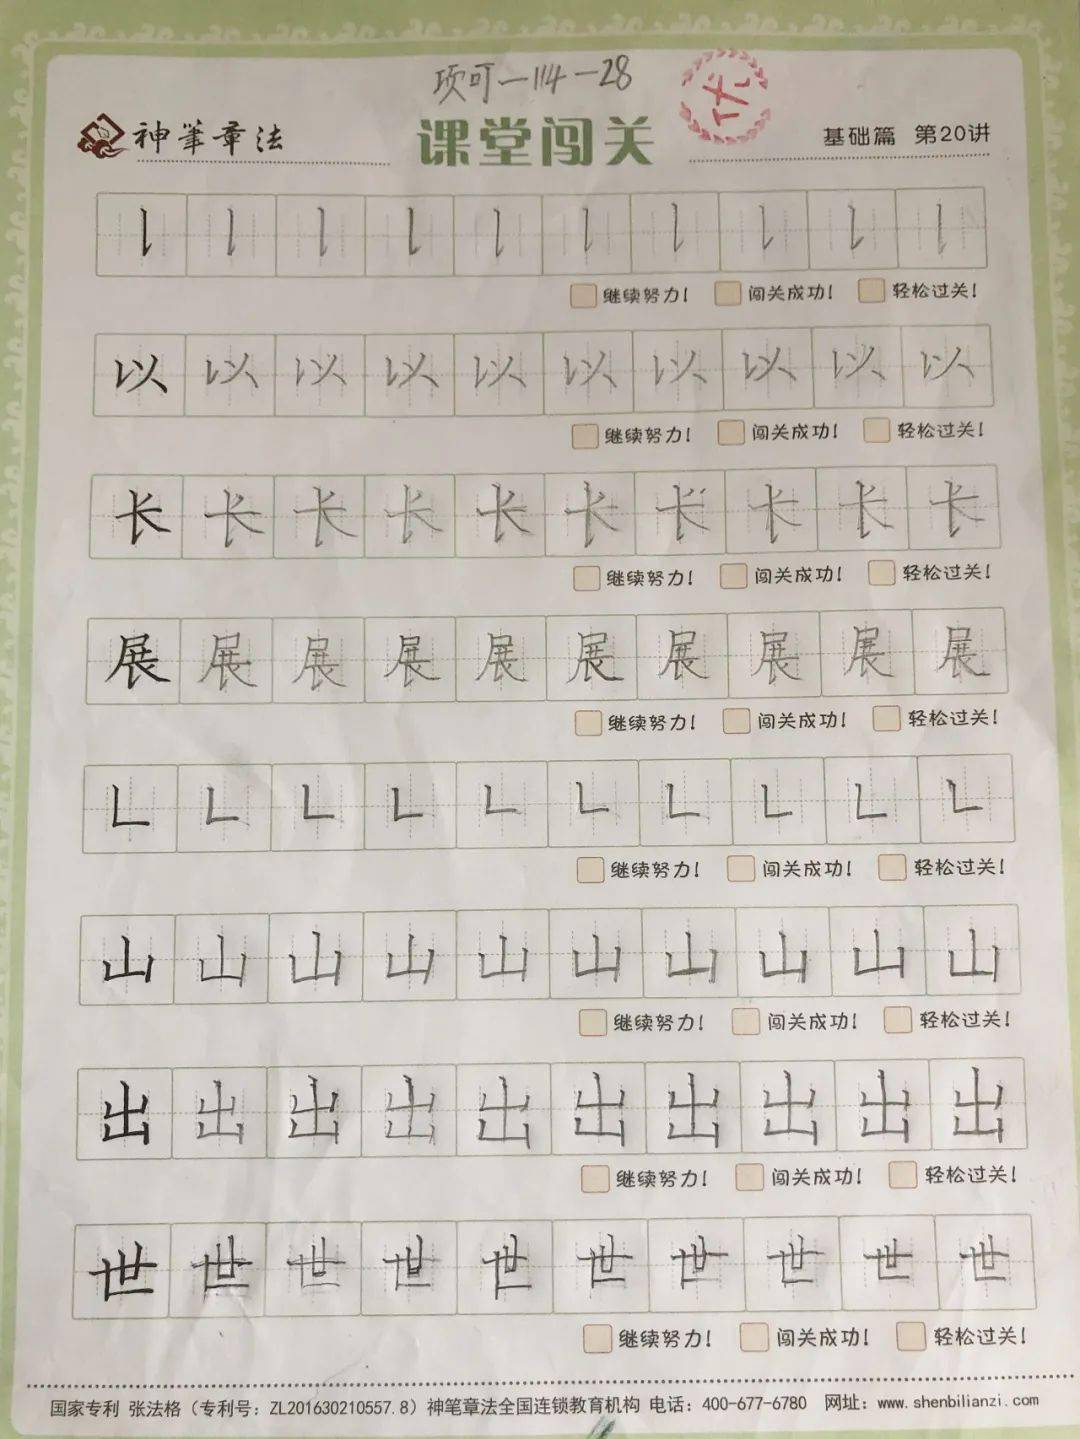 项可一114一28
神笔章法 课堂闯关 优 基础篇 第20讲
继续努力! 闯关成功! 轻松过关!
以 以 以 以 以 以 以 以 以 以
继续努力! 闯关成功! 轻松过关!
长 长 长 长 长 长 长 长 长 长
继续努力! 闯关成功! 轻松过关!
展 展 展 展 展 展 展 展 展 展
继续努力! 闯关成功! 轻松过关!
继续努力! 闯关成功! 轻松过关!
山 山 山 山 山 山 山 山 山 山
继续努力! 闯关成功! 轻松过关!
出 出 出 出 出 出 出 出 出 出
继续努力! 闯关成功! 轻松过关!
世 世 世 世 世 世 世 世 世 世
继续努力! 闯关成功! 轻松过关!
国家专利 张法格（专利号：ZL201630210557.8）神笔章法全国连锁教育机构 电话：400-677-6780 网址：www.shenbilianzi.com